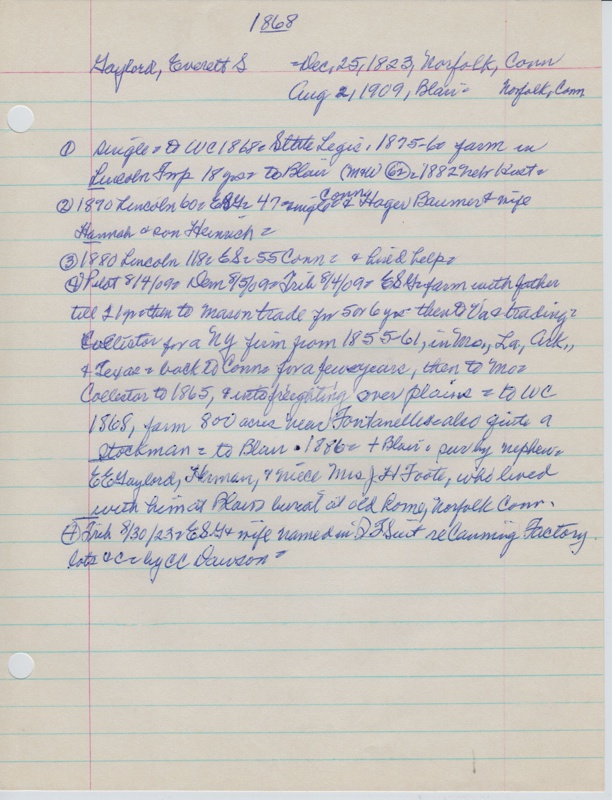 1868
Gaylord, Everett S = Dec, 25, 1823, Norfolk, Conn
Aug 2, 1909, Blair = Norfolk, Conn
① single = to WC 1868 = State Legis, 1875-6 = farm in
Lincoln Twp 18 yrs = to Blair = 1882
② 1870 Lincoln 60 = ESG = 47 = single Conn & Hager Baumer & wife
Hannah & son Heinrich =
③ 1880 Lincoln 118 = ES = 55 Conn = & hired help =
④ Pilot 8/4/09 = Dem 8/5/09 = Trib 8/4/09 = ESG = farm with father
till 21 yr = then to Mason trade for 5 or 6 yrs = then to Va = trading =
Collector for a NY firm from 1855-61, in Mo., La, Ark.,
& Texas = back to Conn for a few years, then to Mo =
Collector to 1865, & into freighting over plains = to WC
1868, farm 800 acres near Fontanelle = also quite a
stockman = to Blair 1886 = + Blair = sur by nephew =
EE Gaylord, Herman, & niece Mrs J H Foote, who lived
with him at Blair = burial at old home, Norfolk Conn.
④ Trib 8/30/23 = ESG & wife named in QT Suit reclaiming Factory
lots &c = by CC Dawson =